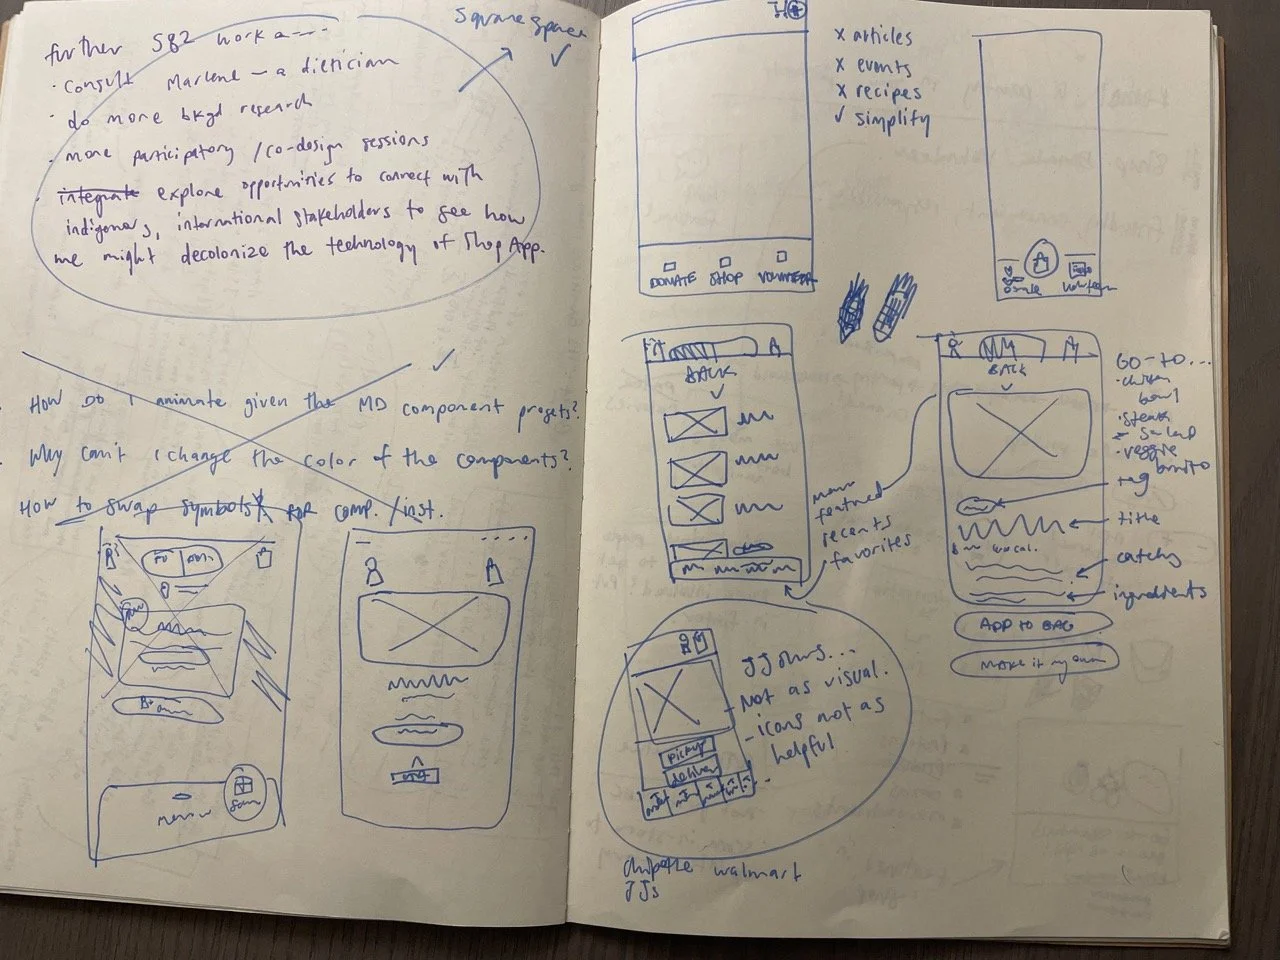 further 582 work
Squarespace ✓
· consult Marlene – a dietician
· do more bkgd research
· more participatory / co-design sessions
· integrate explore opportunities to connect with
indigenous, international stakeholders to see how
we might decolonize the technology of Shop App.
✓
· How do I animate given the MD component
· Why can't I change the color of the components?
How to swap symbols FOR comp. / inst.
menu
x articles
x events
x recipes
✓ simplify
DONATE SHOP VOLUNTEER
BACK
featured
recents
favorites
BACK
Go-to...
· chicken
bowl
· steak
salad
· veggie
burrito
tag
title
catchy
ingredients
ADD to BAG
MAKE it my own
JJohns...
– Not as visual.
– icons not as
helpful
pickup
delivery
chipotle walmart
JJs